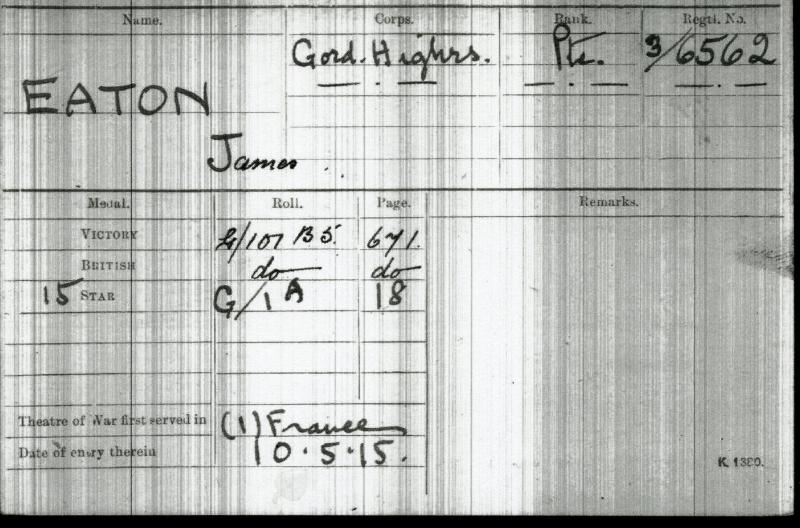 Name. Corps. Rank. Regtl. No.
Gord. Highrs. Pte. 3/6562
EATON
James
Medal. Roll. Page. Remarks.
VICTORY G/107 B5. 671.
BRITISH do do
15 STAR G/1 A 18
Theatre of War first served in (1) France
Date of entry therein 10.5.15.
K. 1380.